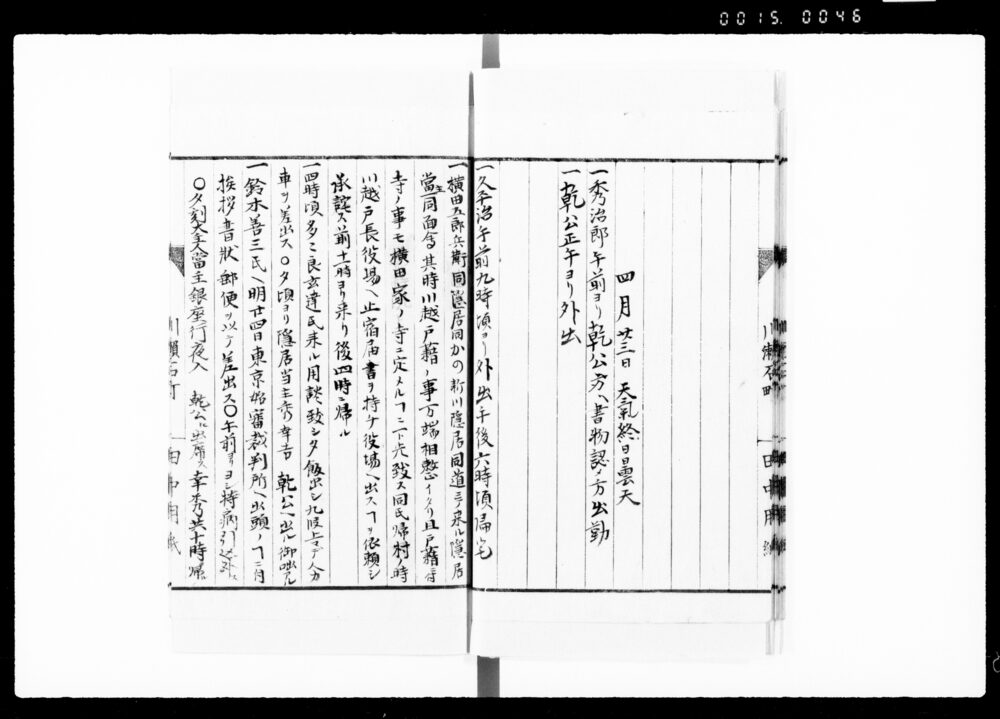 0015. 0046
四月廿三日 天氣終日曇天
一秀治郎午前ヨリ乾公方ヘ書物認メ方出勤
一乾公正午ヨリ外出
一久平治午前九時頃ヨリ外出午後六時頃帰宅
一横田五郎兵衛同隠居同かの新川隠居同道ニテ来ル隠居
當主同面會其時川越戸籍ノ事万端相整イタリ且戸籍
寺ノ事モ横田家ノ寺ニ定メルヿニ致ス同氏帰村ノ時
川越戸長役場ヘ止宿届書ヲ持チ役場ヘ出スヿヲ依頼シ
承諾ス前十一時ヨリ来リ後四時ニ帰ル
一四時頃多々良玄達氏来ル用談致シタ飯出シ九段上マテ人力
車ヲ差出ス〇夕頃ヨリ隠居当主 幸吉 乾公ヘ出ル御咄アル
一鈴木善三氏ヘ明廿四日東京始審裁判所ヘ出頭ノヿニ付
挨拶書状郵便ヲ以テ差出ス〇午前ヨリヨシ持病引込
〇夕刻大主人當主銀座行夜入 乾公ヘ出席ス幸秀共十時帰ル
川瀬石町
田中用紙
川瀬石町
田中用紙